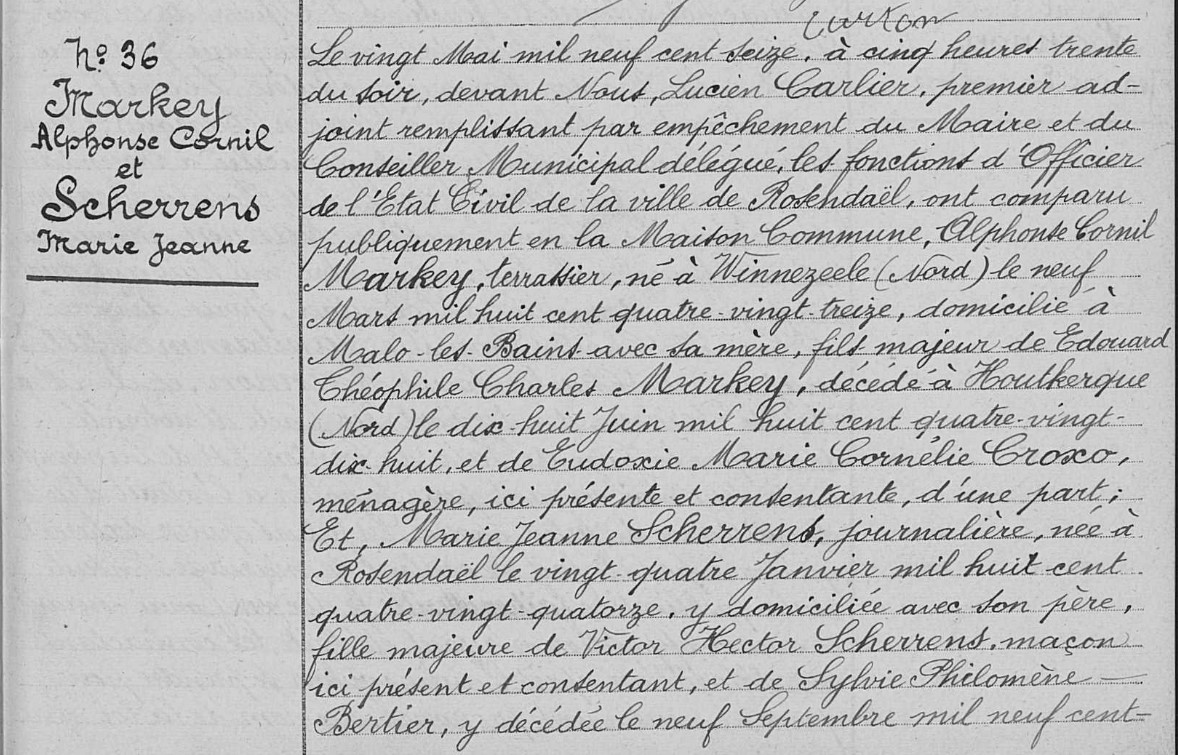 Nº 36
Markey
Alphonse Cornil
et
Scherrens
Marie Jeanne
Le vingt Mai mil neuf cent seize, à cinq heures trente
du soir, devant Nous, Lucien Carlier, premier ad-
joint remplissant par empêchement du Maire et du
Conseiller Municipal délégué, les fonctions d'Officier
de l'Etat Civil de la ville de Rosendaël, ont comparu
publiquement en la Maison Commune, Alphonse Cornil
Markey, terrassier, né à Winnezeele (Nord) le neuf
Mars mil huit cent quatre-vingt-treize, domicilié à
Malo-les-Bains avec sa mère, fils majeur de Edouard
Théophile Charles Markey, décédé à Houtkerque
(Nord) le dix-huit Juin mil huit cent quatre-vingt-
dix-huit, et de Eudoxie Marie Cornélie Croxo,
ménagère, ici présente et consentante, d'une part;
Et, Marie Jeanne Scherrens, journalière, née à
Rosendaël le vingt-quatre Janvier mil huit cent
quatre-vingt-quatorze, y domiciliée avec son père,
fille majeure de Victor Hector Scherrens, maçon
ici présent et consentant, et de Sylvie Philomène —
Bertier, y décédée le neuf Septembre mil neuf cent-